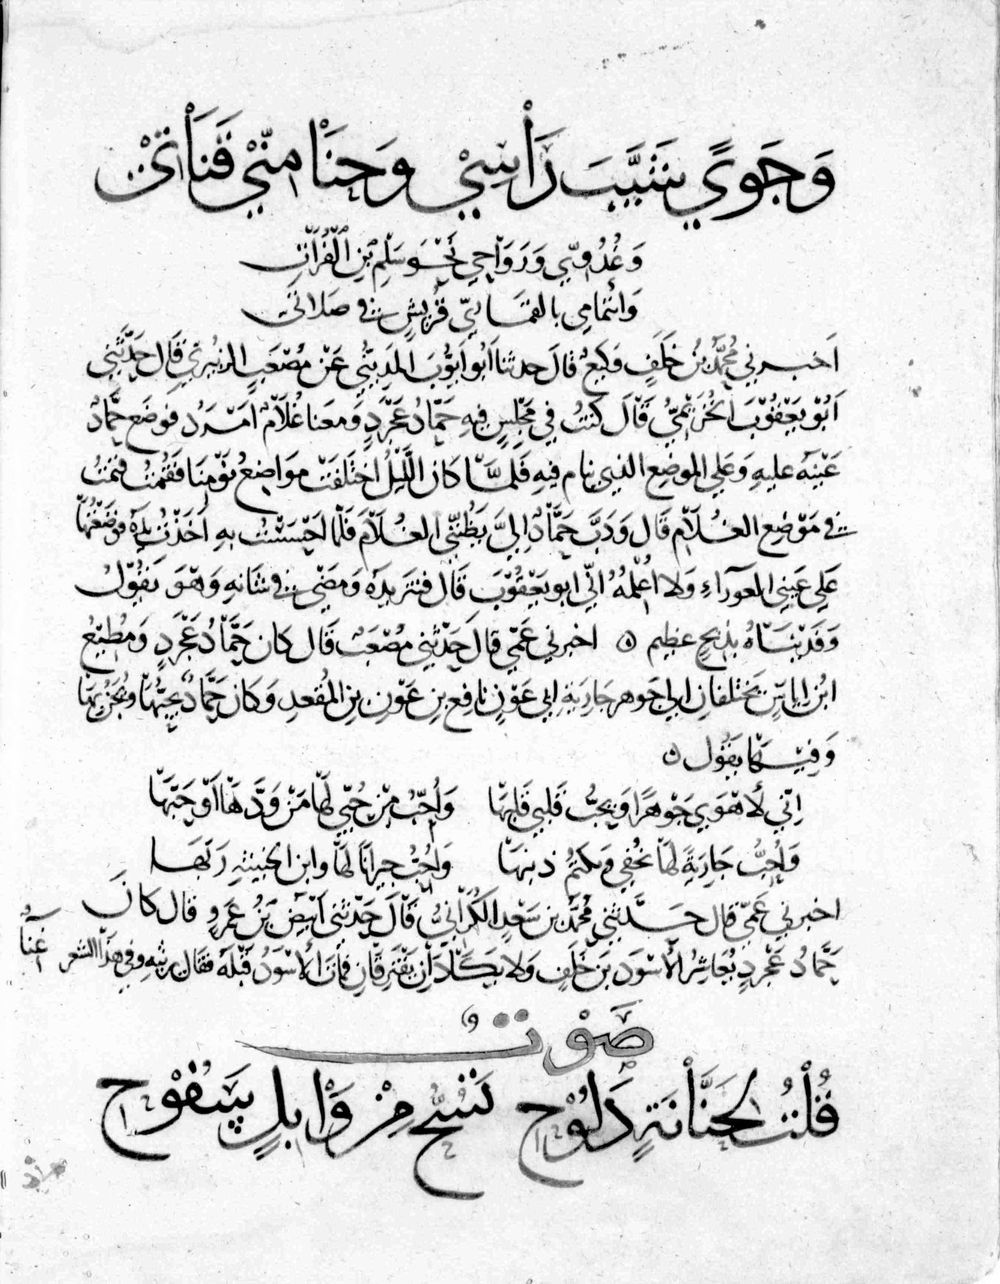 وَجَوًي شَيَّبَ رَأسِيْ وَحَنَا مِنّيْ قَنَاتيْ
وَغُدُوّيْ وَرَوَاحِي نَحْوَ سَلْمِ بْنِ الْفُرَاتِ
وَائتمامِي بالقمَارِيّ قُرَيشٍ في صَلاتي
اَخبرني مُحمَّدُ بنُ خَلَفٍ وَكيعٌ قالَ حدثنا اَبُو اَيّوُبَ المَدِينيُّ عَنْ مُصْعَبٍ الزبيري قَالَ حَدَّثَني
اَبُوْ يَعْقوُبَ الخُرَيْمِيُّ قَالَ كنتُ في مَجْلِسٍ فيهِ حَمّادُ عَجْرَدٍ وَمَعنَا غُلاَمٌ اَمْرَدُ فوضَع حَمَّادٌ
عَيْنَهُ عليهِ وَعَلي الموضِعِ الذي ينام فيهِ فَلَمَّا كانَ اللَّيْلُ اخْتلَفتْ موَاضِعُ نَوْمِنَا فَقُمْتُ فَنمْتُ
في مَوْضِعِ الغُلاَم قَال وَدَبَّ حَمَّادٌ اِليَّ يَظُنُّني الغُلاَمَ فَلمّا اَحْسَسْتُ بهِ اَخَذْتُ يَدَهُ فوَضَعْتُهَا
عَلي عَيْني العَوْرَاءِ وَلاُعْلِمَهُ انِّي ابو يَعْقُوْبَ قَال فنتَرَ يدَهُ وَمضي في شانهِ وَهْوَ يَقُوْلُ
وَفَدَيْنَاهُ بِذِبْحٍ عظِيم ه اخبرَني عَمّي قالَ حَدّثني مُصْعَبٌ قَالَ كانَ حَمَّادُ عَجْرَدٍ وَمُطيْعُ
ابْنُ اِيَاسٍ يختلفَانِ الي جَوهر جَاريَةِ ابي عَوْنٍ نافِع بنِ عَوْنِ بنِ المُقعدِ وَكانَ حَمَّادٌ يُحبُّهَا وَيُجَنُّ بهَا
وَفيهَا يَقُول ه
اِنّي لأهْوَي جَوْهرًا وَيُحبُّ قَلبي قَلبهَا وَاُحِبُّ مِنْ حُبّي لَهَا مَنْ وَدَّهَا اَوْ حَبَّهَا
وَاُحِبُّ جَارِيَةً لهَا تُخفي وَتكتُمُ ذنبهَا وَاُحِبُّ جيرَانًا لهَا وابنَ الخبيثةِ رَبَّهَا
اخبرني عَمّي قال حَدَّثني مُحمَّدُ بن سَعْدٍ الكُرَانيُّ قَالَ حَدّثني اَبيَضُ بنُ عَمْرٍو قال كانَ
حَمَّادُ عَجْردٍ يُعَاشِرُ الأسْوَدَ بنَ خَلَفٍ وَلا يَكَادَانِ يَفْتَرِقَانِ فمَاتَ الأَسْوَدُ قَبْلَهُ فقَال يرثيهِ وفي هَذا الشعر غِنَاءٌ
صَوْت
قُلْتُ لحَنَّانَةٍ دَلُوْحٍ تَسُحُّ مِنْ وَابِلٍ سَفُوْحٍ